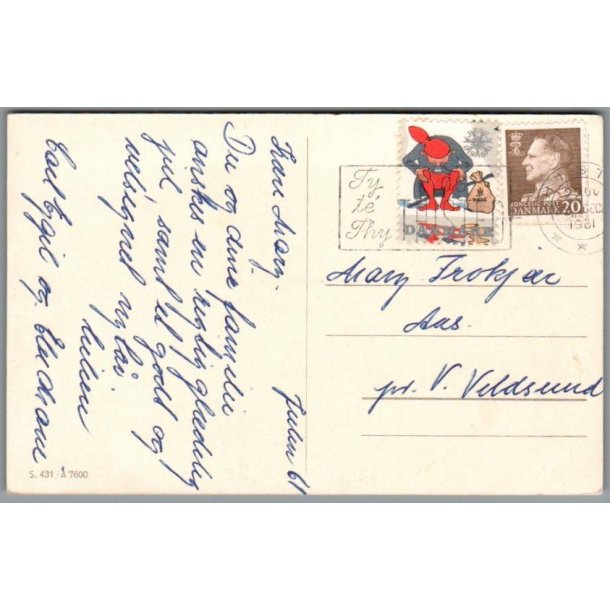 Julen 61
Kære Mary.
Du og dine familie
ønskes en rigtig glædelig
jul samt et godt og
velsignet nytår.
hilsen
Carl Egil og
S. 431 / A 7600
Ty
te
Thy
DANMARK
KONGELIG POST
DANMARK 20
1961
Mary Trokjær
Aas.
pr. V. Veldsund